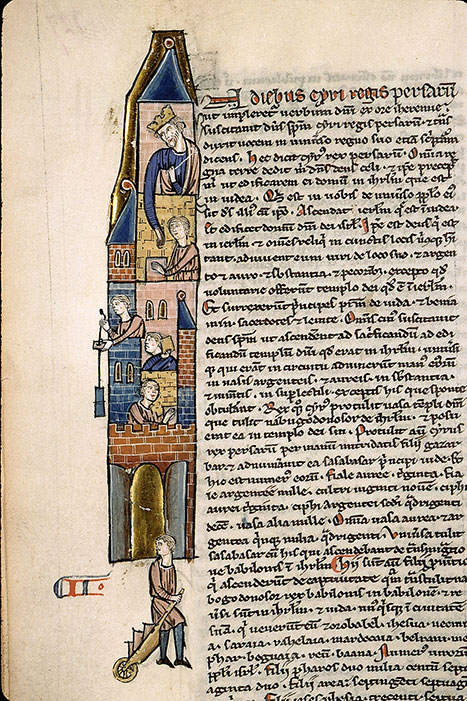 diebus cyri regis persarū
ut impleret uerbum dn̄i ex ore iheremie
suscitauit dn̄s spm̄ cyri regis persarū
uocem in uniuso regno suo etiā
dicens. hec dicit cyrus rex persarū. Om̄ia
gna terre dedit m̄ dn̄s deus celi. & ipe precep
m̄ ut edificarem ei domum in ihrl̄m que est
in iudea. Qis est in uobis de uniuso pplo ei
sit ds̄ illi' cū ipo. Ascendat ierl̄m que est in iudea
& edificet domū dn̄i dei isrl̄. Ipe est deus qui est
in ierl̄m & om̄es reliqui in cunctis locis
tant. adiuuent eum uiri de loco suo. & argento
& auro. & substantia. & pecorib; excepto qd
uoluntarie offerunt templo dei qd est ierl̄m
Et surrexerunt principes patrū de iuda. & benia
min. sacerdotes & leuite. Om̄is cui' suscitauit
deus spm̄ ut ascenderent ad edi
ficandū templū dn̄i qd erat in ihrl̄m. uniusi
qui erant in circuitu adiuuerunt man' eorū
in uasis argenteis. & aureis. in substantia
& iumentis. in suppellectili. exceptis his que sponte
obtulerant. Rex qq cyrus protulit uasa templi dn̄i
que tulit nabugodonosor de ihrl̄m. & posu
erat ea in templo dei sui. Protulit aūt cyrus
rex persarū per manum mitridati filii gazar
bar. & adnumerauit ea salabasar principi iude.
hic est numerus eorū. fiale auree. triginta. fia
le argentee mille. cultri uiginti nouē. ciphi
aurei triginta. ciphi argentei scdi qdrigenti
decē. uasa alia mille. Om̄ia uasa aurea. & ar
gentea qinq; milia qdrigenti. Uniuersa tulit
salabasar cū his qui ascendebant de tnsmigratio
ne babilonis & ihrl̄m. Hii sunt aūt filii prouintie
qi ascenderunt de captiuitate quā tnstulerat na
bogodonosor rex babilonis in babilonē. & re
uersi sunt in ihrl̄m. & iuda. unus quisq; in ciuitatē
suā. qi uenerunt cū zorobabel. ihesua. neemi
a. saraia. rahelaia. mardocaia. belsan.
phar. boguaia. reū. baana. Numerus uirorū
ppli isrl̄. filii pharos duo milia centū septu
aginta duo. filii area septingenti septuagi